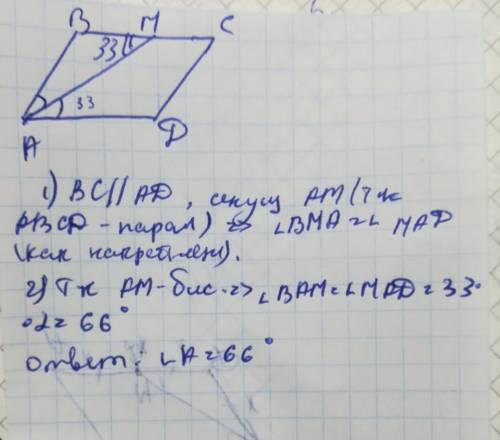 B M C
33
33
A D
1) BC // AD, секущ AM (т к
ABCD - парал) => ∠BMA = ∠ MAD
(как накрест леж).
2) Т к AM - бис. => ∠BAM = ∠MAD = 33·
·2 = 66°
Ответ: ∠A = 66°